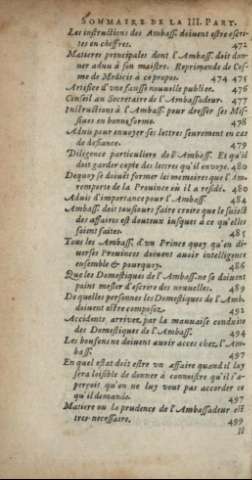 SOMMAIRE DE LA III. PART.
Les instructions des Ambass. doiuent estre escri-
tes en cheffres. 472
Matieres principales dont l'Ambass. doit don-
ner aduis à son maistre. Reprimande de Cos-
me de Medicis à ce propos. 474 475
Artifice d'vne fausse nouuelle publiee. 476
Conseil au Secretaire de l'Ambassadeur. 477
Instructions à l'Ambass. pour dresser ses Mis-
siues en bonne forme. 478
Aduis pour enuoyer ses lettres seurement en cas
de desiance. 479
Diligence particuliere de l'Ambass. Et qu'il
doit garder copie des lettres qu'il enuoye. 480
Dequoy se doiuent former les memoires que l'Am.
remporte de la Prouince où il a residé. 480
Aduis d'importance pour l'Ambass. 484
Ambass. doit tousiours faire croire que le succés
des affaires est douteux iusques à ce qu'elles
soient faites. 485
Tous les Ambass. d'vn Prince quoy qu'en di-
uerses Prouinces doiuent auoir intelligence
ensemble & pourquoy. 486
Que les Domestiques de l'Ambass. ne se doiuent
point mesler d'escrire des nouuelles. 489
De quelles personnes les Domestiques de l'Amb.
doiuent estre composez. 492
Accidents arriuez par la mauuaise conduite
des Domestiques de l'Ambass. 494
Les bouffons ne doiuent auoir acces chez l'Am-
bass. 497
En quel estat doit estre vn affaire quand il luy
sera loisible de donner à connoistre qu'il s'ap-
perçoit qu'on ne luy veut pas accorder ce
qu'il demande. 497
Matiere ou la prudence de l'Ambassadeur est
tres-necessaire. 499